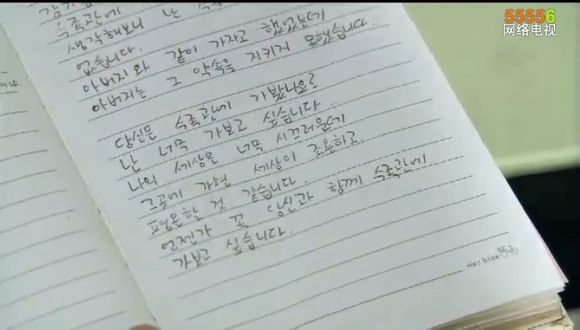 55556
网络电视
수족관에
생각해보니 난 수족
없습니다.
아버지와 같이 가자고 했었는데
아버지는 그 약속을 지키지 못했습니다
당신은 수족관에 가봤나요?
난 너무 가보고 싶습니다.
나의 세상은 너무 시끄러운데
그곳에 가면 세상이 조용하고
평온할 것 같습니다.
언젠가 꼭 당신과 함께 수족관에
가보고 싶습니다.